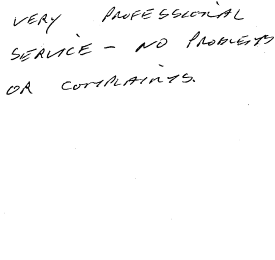 VERY PROFESSIONAL
SERVICE - NO PROBLEMS
OR COMPLAINTS.